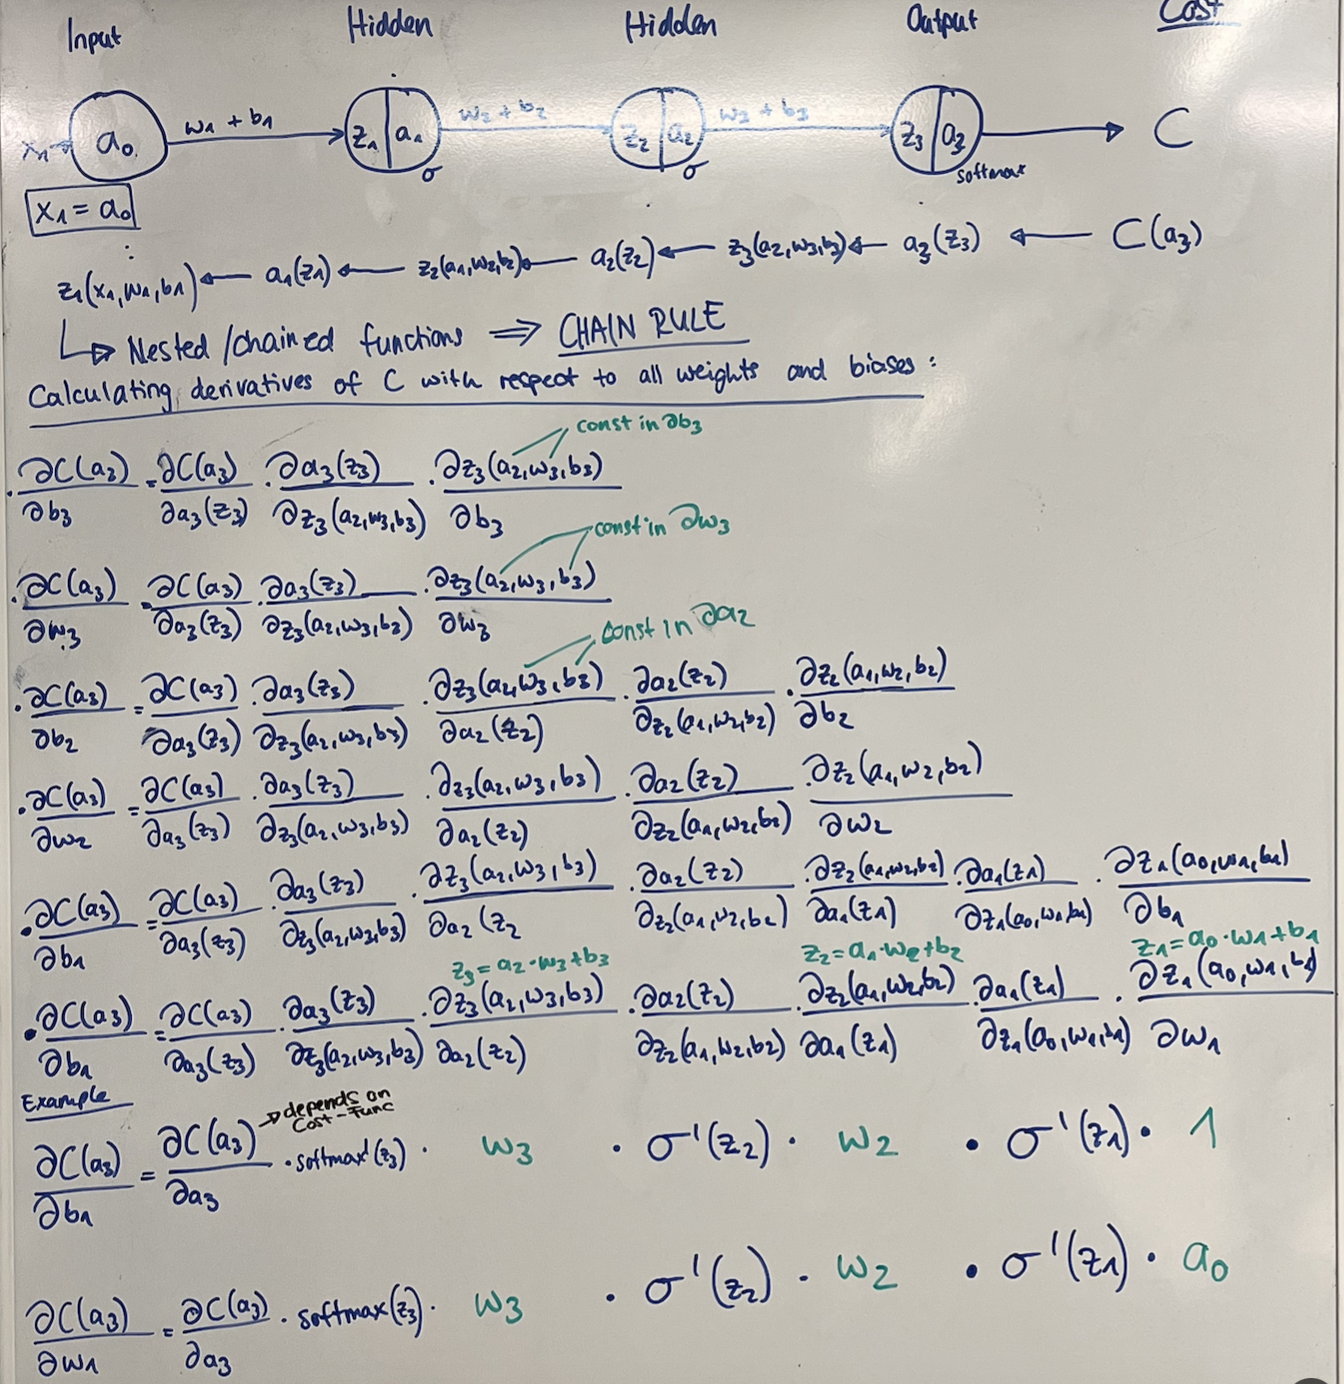 Input Hidden Hidden Output Cost
x₁ → a₀ w₁ + b₁ z₁ | a₁ w₂ + b₂ z₂ | a₂ w₃ + b₃ z₃ | a₃ → C
σ σ softmax
x₁ = a₀
z₁(x₁,w₁,b₁) ← a₁(z₁) ← z₂(a₁,w₂,b₂) ← a₂(z₂) ← z₃(a₂,w₃,b₃) ← a₃(z₃) ← C(a₃)
↳ Nested/chained functions ⇒ CHAIN RULE
Calculating derivatives of C with respect to all weights and biases:
const in ∂b₃
· ∂C(a₃)/∂b₃ = ∂C(a₃)/∂a₃(z₃) · ∂a₃(z₃)/∂z₃(a₂,w₃,b₃) · ∂z₃(a₂,w₃,b₃)/∂b₃
const in ∂w₃
· ∂C(a₃)/∂w₃ = ∂C(a₃)/∂a₃(z₃) · ∂a₃(z₃)/∂z₃(a₂,w₃,b₃) · ∂z₃(a₂,w₃,b₃)/∂w₃
const in ∂a₂
· ∂C(a₃)/∂b₂ = ∂C(a₃)/∂a₃(z₃) · ∂a₃(z₃)/∂z₃(a₂,w₃,b₃) · ∂z₃(a₂,w₃,b₃)/∂a₂(z₂) · ∂a₂(z₂)/∂z₂(a₁,w₂,b₂) · ∂z₂(a₁,w₂,b₂)/∂b₂
· ∂C(a₃)/∂w₂ = ∂C(a₃)/∂a₃(z₃) · ∂a₃(z₃)/∂z₃(a₂,w₃,b₃) · ∂z₃(a₂,w₃,b₃)/∂a₂(z₂) · ∂a₂(z₂)/∂z₂(a₁,w₂,b₂) · ∂z₂(a₁,w₂,b₂)/∂w₂
· ∂C(a₃)/∂b₁ = ∂C(a₃)/∂a₃(z₃) · ∂a₃(z₃)/∂z₃(a₂,w₃,b₃) · ∂z₃(a₂,w₃,b₃)/∂a₂(z₂ · ∂a₂(z₂)/∂z₂(a₁,w₂,b₂) · ∂z₂(a₁,w₂,b₂)/∂a₁(z₁) · ∂a₁(z₁)/∂z₁(a₀,w₁,b₁) · ∂z₁(a₀,w₁,b₁)/∂b₁
z₃ = a₂·w₃+b₃ z₂ = a₁·w₂+b₂ z₁ = a₀·w₁+b₁
· ∂C(a₃)/∂b₁ = ∂C(a₃)/∂a₃(z₃) · ∂a₃(z₃)/∂z₃(a₂,w₃,b₃) · ∂z₃(a₂,w₃,b₃)/∂a₂(z₂) · ∂a₂(z₂)/∂z₂(a₁,w₂,b₂) · ∂z₂(a₁,w₂,b₂)/∂a₁(z₁) · ∂a₁(z₁)/∂z₁(a₀,w₁,b₁) · ∂z₁(a₀,w₁,b₁)/∂w₁
Example
→ depends on
Cost-Func
∂C(a₃)/∂b₁ = ∂C(a₃)/∂a₃ · softmax'(z₃) · w₃ · σ'(z₂) · w₂ · σ'(z₁) · 1
∂C(a₃)/∂w₁ = ∂C(a₃)/∂a₃ · softmax(z₃) · w₃ · σ'(z₂) · w₂ · σ'(z₁) · a₀